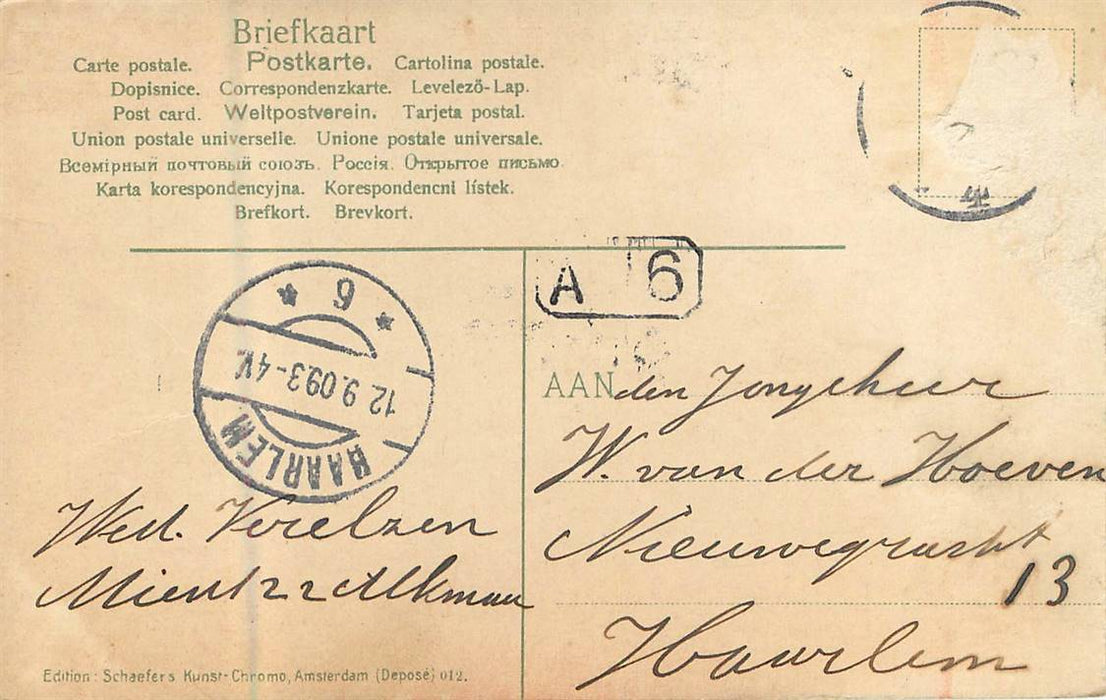 Briefkaart
Carte postale. Postkarte. Cartolina postale.
Dopisnice. Correspondenzkarte. Levelező-Lap.
Post card. Weltpostverein. Tarjeta postal.
Union postale universelle. Unione postale universale.
Всемірный почтовый союзъ. Россія. Открытое письмо.
Karta korespondencyjna. Korespondencni lístek.
Brefkort. Brevkort.
A 6
HAARLEM 6
12.9.09 3-4V.
AAN den Jongeheer
W. van der Hoeven
Nieuwegracht
13
Haarlem
Wed. Verelzen
Alkmaar
Edition: Schaefers Kunst-Chromo, Amsterdam (Deposé) 012.